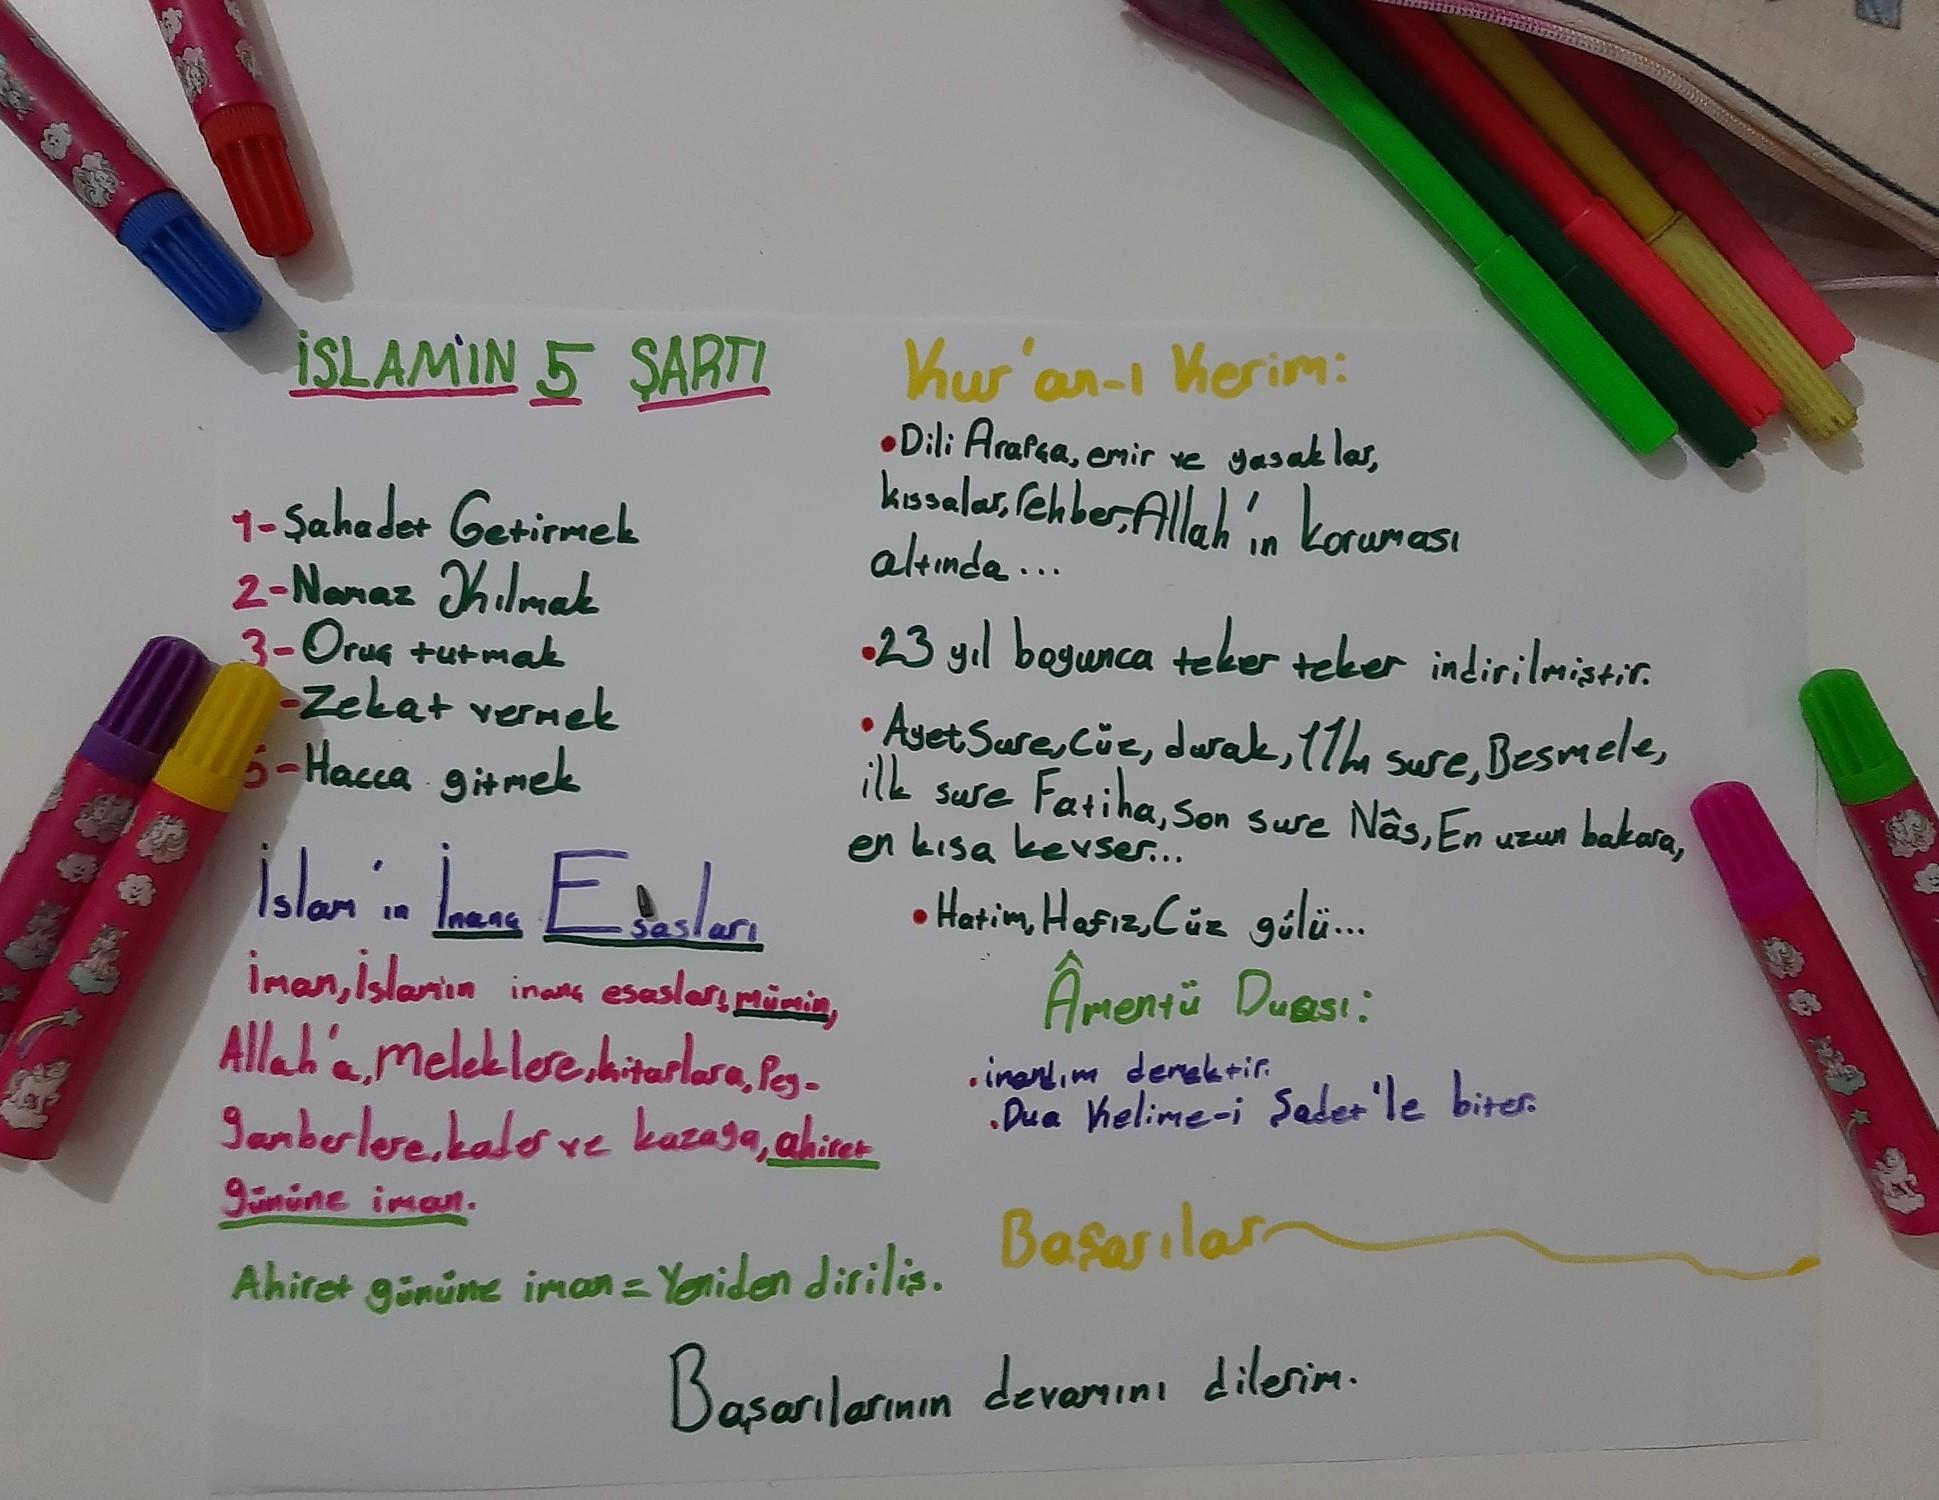 İSLAM'IN 5 ŞARTI
1-Şahadet Getirmek
2-Namaz Kılmak
3-Oruç tutmak
-Zekat vermek
5-Hacca gitmek
İslam'ın İnanç Esasları
İman, İslam'ın inanç esasları, mümin,
Allah'a, Meleklere, kitaplara, Pey-
gamberlere, kader ve kazaya, ahiret
gününe iman.
Ahiret gününe iman = Yeniden diriliş.
Kur'an-ı Kerim:
•Dili Arapça, emir ve yasaklar,
kıssalar, rehber, Allah'ın koruması
altında...
•23 yıl boyunca teker teker indirilmiştir.
•Ayet, Sure, Cüz, durak, 114 sure, Besmele,
ilk sure Fatiha, Son sure Nâs, En uzun bakara,
en kısa kevser...
•Hatim, Hafız, Cüz gülü...
Âmentü Duası:
.inandım demektir.
.Dua Kelime-i Şadet'le biter.
Başarılar
Başarılarının devamını dilerim.